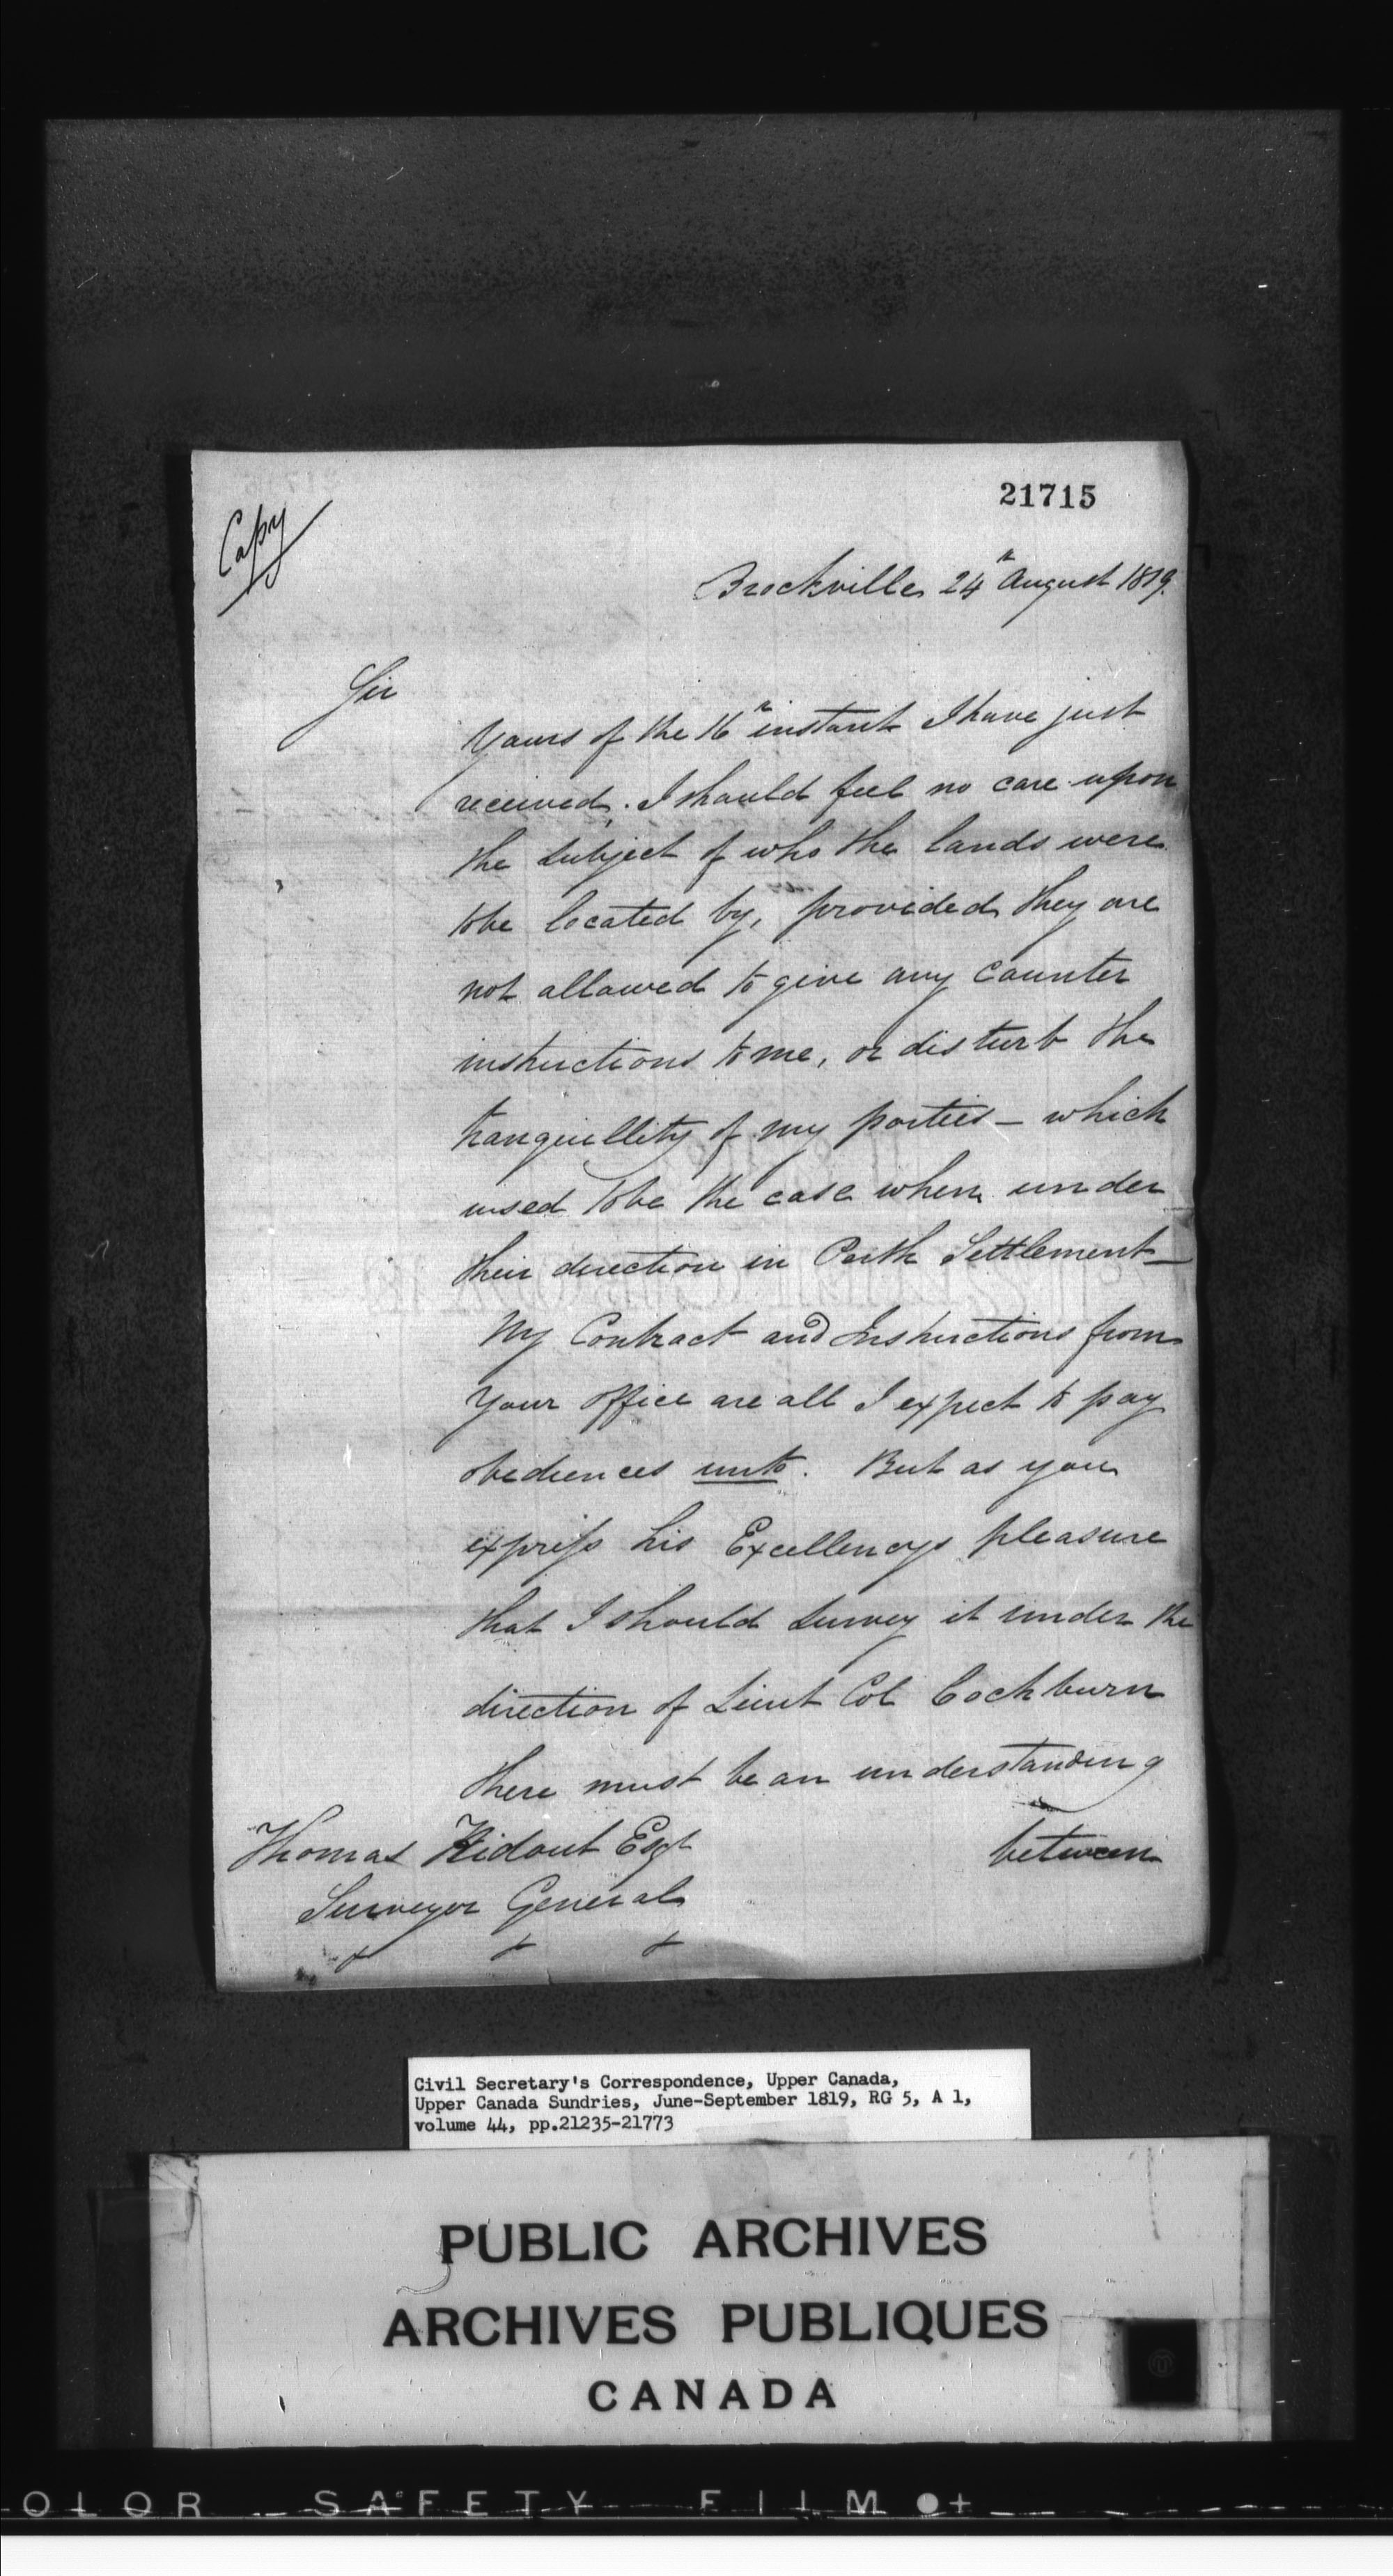 21715
Copy
Brockville 24th August 1819.
Sir
Yours of the 16th instant I have just
received. I should feel no care upon
the subject of who the lands were
to be located by, provided they are
not allowed to give any counter
instructions to me, or disturb the
tranquillity of my parties – which
used to be the case when under
their direction in Perth Settlement –
My Contract and Instructions from
your office are all I expect to pay
obediences unto. But as you
express his Excellencys pleasure
that I should survey it under the
direction of Lieut Col Cockburn
there must be an understanding
between
Thomas Ridout Esqr
Surveyor General
Civil Secretary's Correspondence, Upper Canada,
Upper Canada Sundries, June-September 1819, RG 5, A 1,
volume 44, pp.21235-21773
PUBLIC ARCHIVES
ARCHIVES PUBLIQUES
CANADA
OLOR SAFETY FILM